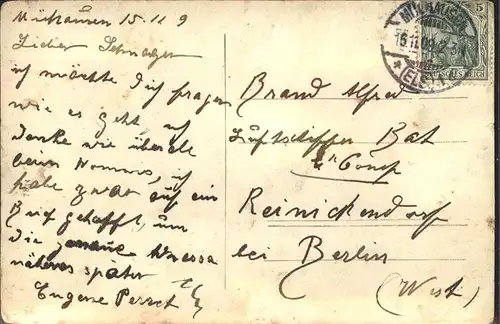 Mülhausen 15.11 9
Lieber Schwalzer
ich möchte dich fragen
wie es geht, ich
denke wie überall
beim Kommis, ich
habe zwar auf ein
Brief gehofft, um
die genaue Adressa
näheres später
Eugene Perret
MÜLHAUSEN
15.11.09.2-3N
(ELS.)
5
Brand Alfred
Luftschiffer Bat
4te Comp
Reinickendorf
bei Berlin
(West)